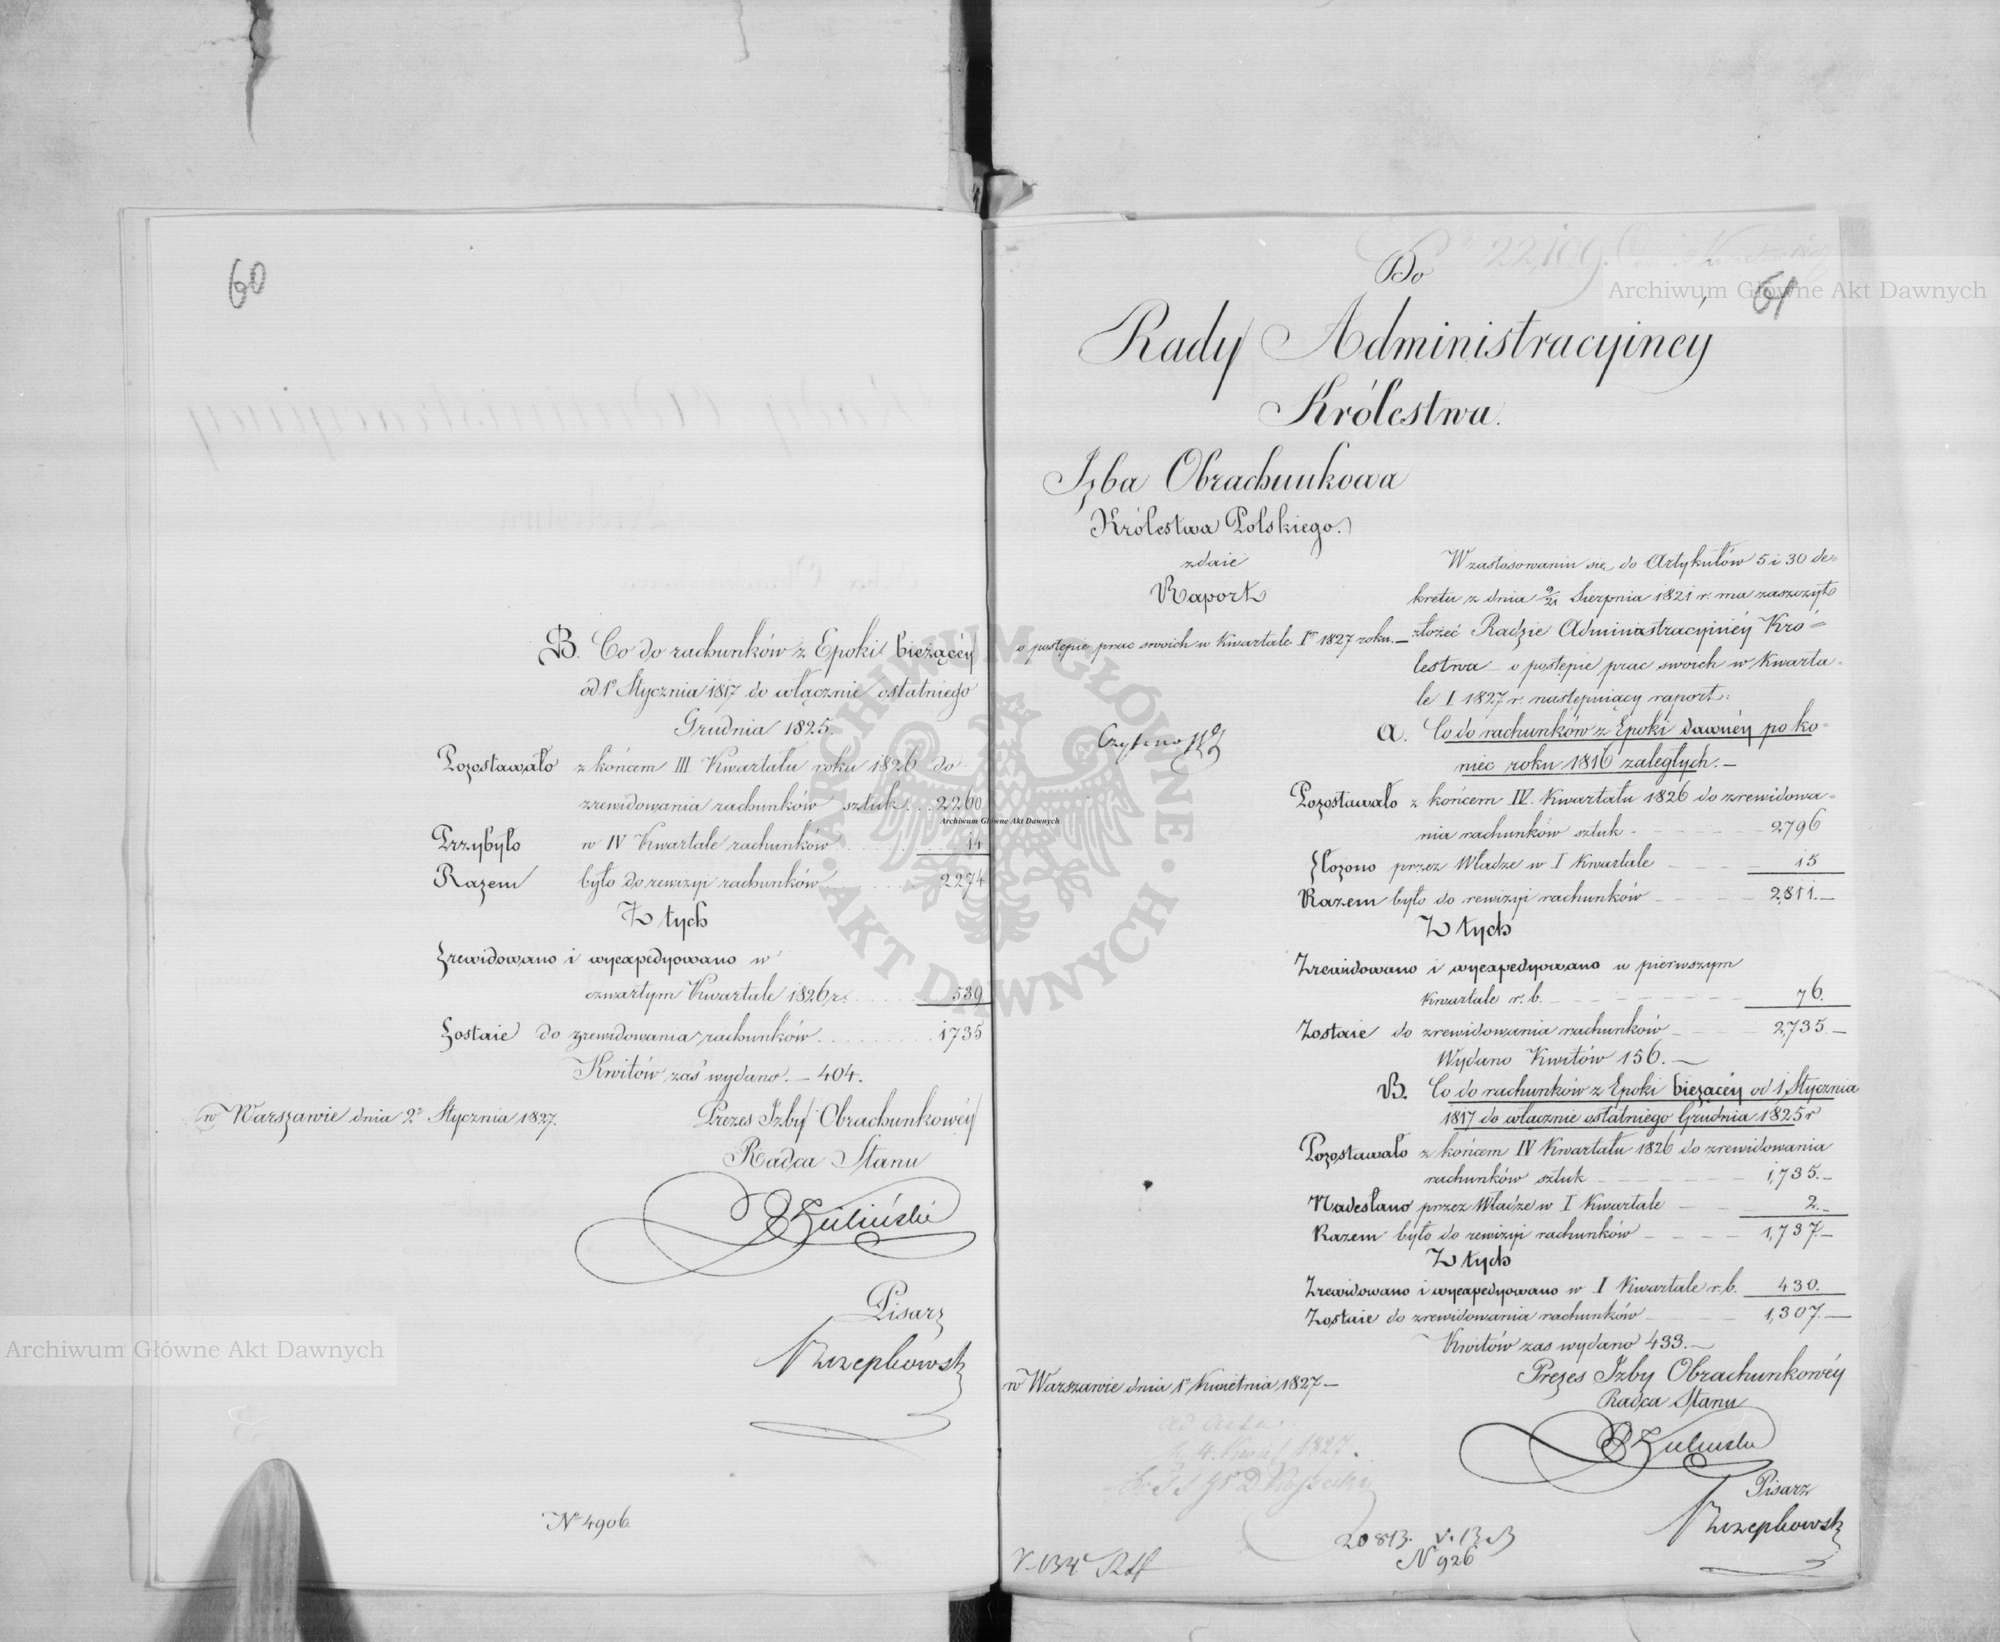 60
B. Co do rachunków z Epoki bieżącéy
od 1º Stycznia 1817 do włącznie ostatniego
Grudnia 1825.
Pozostawało z końcem III Kwartału roku 1826 do
zrewidowania rachunków sztuk . . . 2260
Przybyło w IV Kwartale rachunków . . . 14
Razem było do rewizyi rachunków . . . 2274
Z tych
Zrewidowano i wyexpedyowano w
czwartym Kwartale 1826 r. . . . 539
Zostaie do zrewidowania rachunków . . . 1735
Kwitów zaś wydano. — 404.
w Warszawie dnia 2º Stycznia 1827.
Prezes Izby Obrachunkowéy
Radca Stanu
Pisarz
Nº 4906.
Do
22,109.
61
Rady Administracyinéy
Królestwa.
Izba Obrachunkowa
Królestwa Polskiego.
zdaie
Raport
o postępie prac swoich w Kwartale Im 1827 roku. —
W zastosowaniu się do Artykułów 5 i 30 de=
kretu z dnia 9/21 Sierpnia 1821 r. ma zaszczyt
złożeć Radzie Administracyinéy Kró=
lestwa o postępie prac swoich w Kwarta=
le I 1827 r. następuiący raport:
Czytano
A. Co do rachunków z Epoki dawnéy po ko=
niec roku 1816 zaległych. —
Pozostawało z końcem IV. Kwartału 1826 do zrewidowa=
nia rachunków sztuk - - - 2796
Złożono przez Władze w I Kwartale - - - 15
Razem było do rewizyi rachunków - - - 2,811. —
Z tych
Zrewidowano i wyexpedyowano w pierwszym
Kwartale r. b. - - - 76.
Zostaie do zrewidowania rachunków - - - 2,735. —
Wydano Kwitów 156. —
B. Co do rachunków z Epoki bieżącéy od 1 Stycznia
1817 do włącznie ostatniego Grudnia 1825 r
Pozostawało z końcem IV Kwartału 1826 do zrewidowania
rachunków sztuk - - - 1,735. —
Nadesłano przez Władze w I Kwartale - - - 2. —
Razem było do rewizyi rachunków - - - 1,737. —
Z tych
Zrewidowano i wyexpedyowano w I Kwartale r. b. 430.
Zostaie do zrewidowania rachunków - - - 1,307. —
Kwitów zas wydano 433. —
w Warszawie dnia 1º Kwietnia 1827 —
Prezes Izby Obrachunkowéy
Radca Stanu
ad acta
1827.
Pisarz
20813.
N 926
Archiwum Główne Akt Dawnych
Archiwum Główne Akt Dawnych
Archiwum Główne Akt Dawnych
ARCHIWUM GŁÓWNE AKT DAWNYCH